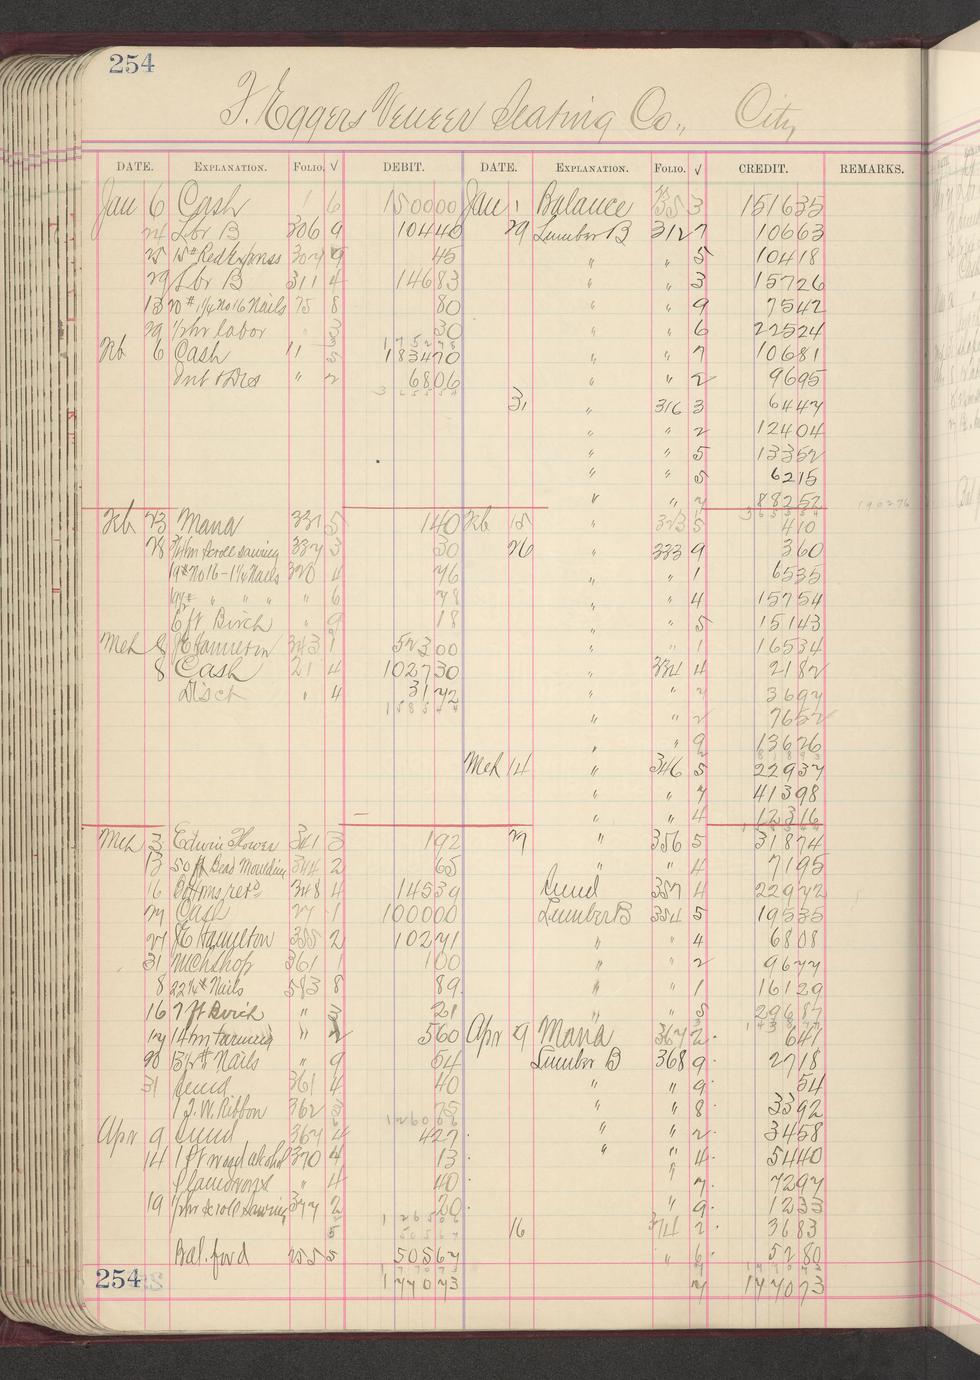 254
F. Eggers Veneer Seating Co., City
DATE. EXPLANATION. FOLIO. √ DEBIT. DATE. EXPLANATION. FOLIO. √ CREDIT. REMARKS.
Jan 6 Cash 6 150000 Jan 1 Balance 3 151635
24 Lbr B 306 9 10440 29 Lumber B 312 7 10663
25 9 45 " " 5 10418
29 Lbr B 311 4 14683 " " 3 15726
13 20 # 1¼ No 16 Nails 75 8 80 " " 9 7542
29 ½ hr labor " 3 30 " " 6 22524
Feb 6 Cash 11 5 183470 " " 7 10681
Int & Dis " 2 6806 " " 2 9695
31 " 316 3 6447
" " 2 12404
" " 5 13352
" " 5 6215
" " 7 88252
190276
Feb 23 Mana 331 5 140 Feb 15 " 323 5 410
28 scroll sawing 334 3 30 26 " 333 9 360
19# No 16 - 1¼ Nails 320 4 76 " " 1 6535
" " " " 6 78 " " 4 15754
6 ft Birch " 9 18 " " 5 15143
Mch 8 J E Hamilton 343 1 52300 " " 1 16534
8 Cash 21 4 102730 " 334 4 2182
Disct " 4 3172 " " 7 3697
158544 " " 2 7652
" " 9 13626
Mch 14 " 346 5 22937
" " 7 41398
" " 4 12316
Mch 3 Edwin Flower 341 3 192 27 " 356 5 31874
13 50 ft Bead Moulding 344 2 65 " " 4 7195
16 Bottoms retd 348 4 14539 Sund 357 4 22972
27 Cash 27 1 100000 Lumber B 354 5 19535
27 J E Hamilton 355 2 10271 " " 4 6808
31 Mchshop 361 1 100 " " 2 9677
8 22¼# Nails 583 8 89 " " 1 16129
16 7 ft Birch " 3 21 " " 5 29687
17 14 hrs turning " 2 560 Apr 9 Mana 367 2 641
20 13½# Nails " 9 54 Lumber B 368 9 2718
31 Sund 361 4 40 " " 9 54
1 T. W. Ribbon 362 3 75 " " 8 3392
Apr 9 Sund 367 4 427 " " 2 3458
14 1 pt wood alcohol 370 4 13 " " 4 5440
" 4 40 " 7 7297
19 ½ hr scroll sawing 377 2 20 " 9 1233
16 374 2 3683
Bal. ford 255 5 50567 " 6 5280
254 177073 7 177073